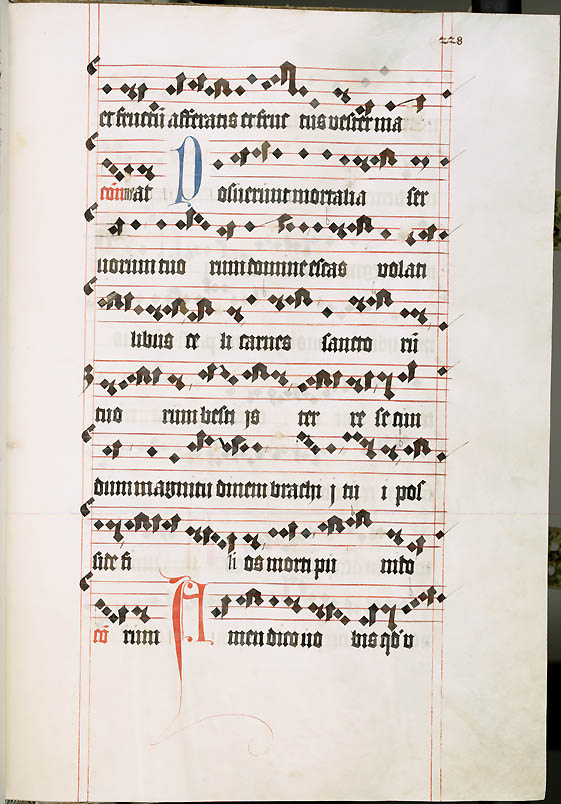 228
et fructū afferatis et fruc tus vester ma
cōm̄ neat Posuerunt mortalia ser
uorum tuo rum domine escas volati
libus ce li carnes sancto rū
tuo rum besti js ter re secun
dum magnitudinem brachi j tu i pos
side fi li os morti pu nito
cō rum Amen dico uo bis qd' v